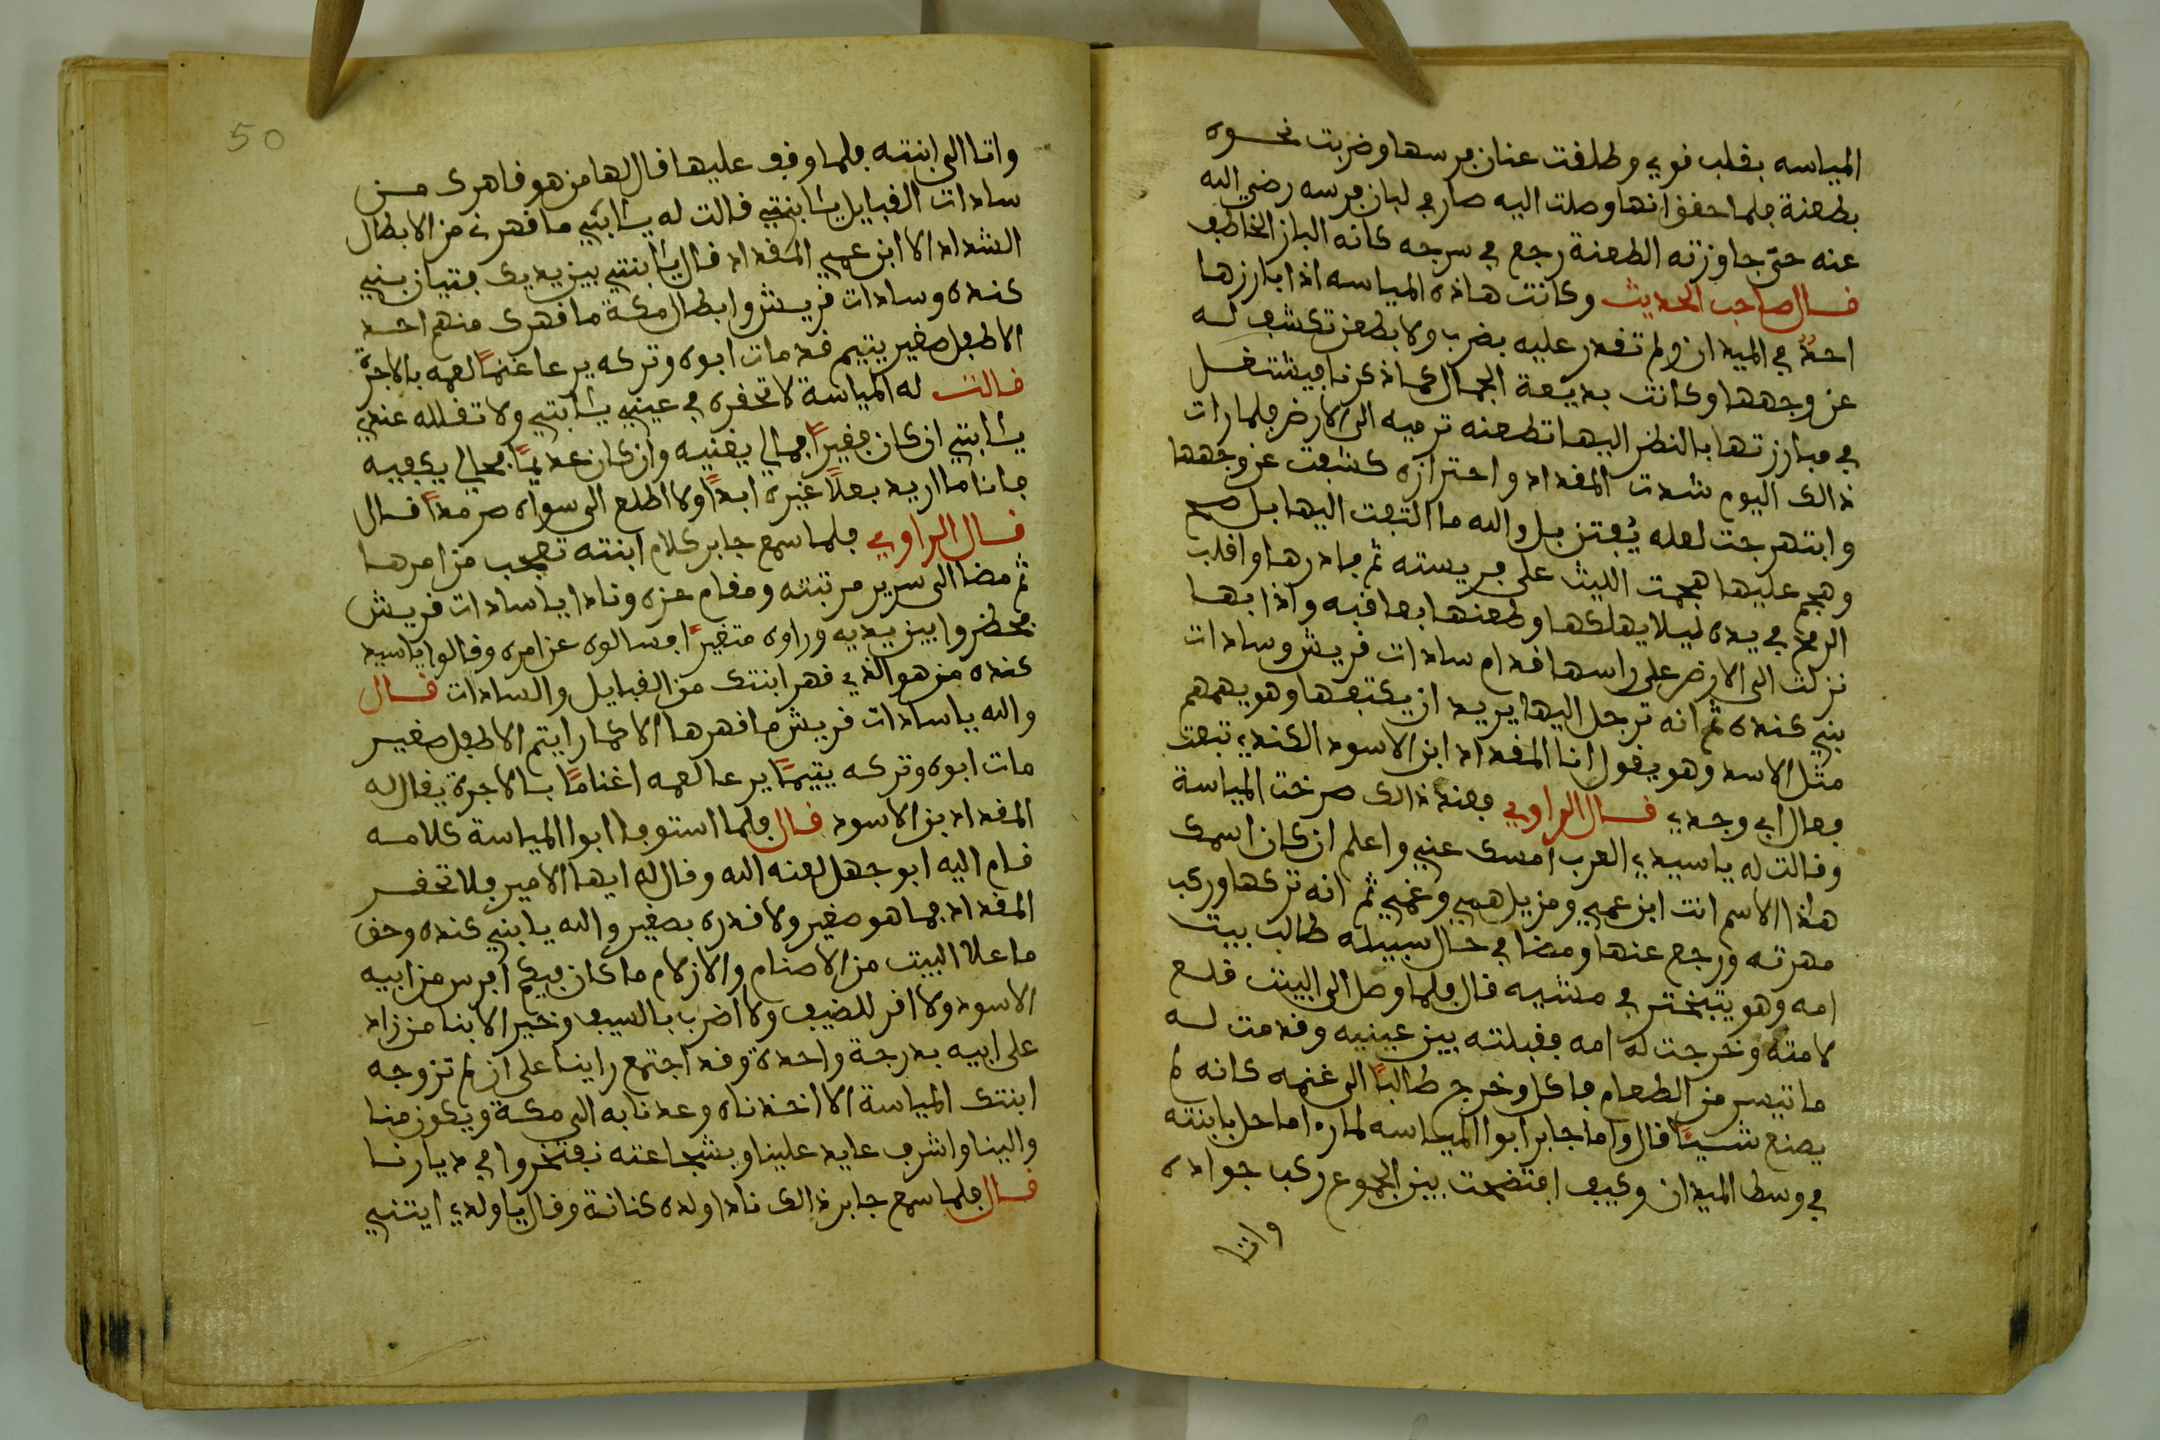 المياسه بقلب قوي وطلقت عنان فرسها وضربت نحوه
بطعنة فلما حقق انها وصلت اليه صار في لبان فرسه رضي الله
عنه حتى جاوزته الطعنة رجع في سرجه كانه الباز الخاطف
قال صاحب الحديث وكانت هاذه المياسه اذا بارزها
احدٌ في الميدان ولم تقدر عليه بضرب ولا بطعن تكشف له
عن وجهها وكانت بديعة الجمال كما ذكرنا فيشتغل
في مبارزتها بالنظر اليها تطعنه ترميه الى الارض فلما رات
ذالك اليوم شدت المقداد واحترازه كشفت عن وجهها
وابتهرجت لعله يُفتن بل والله ما التفت اليها بل صح
وهجم عليها هجمت الليث على فريسته ثم بادرها واقلب
الرمح في يده ليلا يهلكها وطعنها بعاقبه واذا بها
نزلت الى الارض على راسها قدام سادات قريش وسادات
بني كنده ثم انه ترجل اليها يريد ان يكتفها وهو يهمهم
مثل الاسد وهو يقول انا المقداد ابن الاسود الكندي تبعت
فعال ابي وجدي قال الراوي فعند ذالك صرخت المياسة
وقالت له يا سيدي العرب امسك عني واعلم ان كان اسمك
هاذا الاسم انت ابن عمي ومزيل همي وغمي ثم انه تركها وركب
مهرته ورجع عنها ومضا في حال سبيله طالب بيت
امه وهو يتبختر في مشيه قال فلما وصل الى البيت قلع
لامته وخرجت له امه فقبلته بين عينيه وقدمت له
ما تيسر من الطعام فاكل وخرج طالبًا الى غنمه كانه لم
يصنع شيئًا قال واما جابر ابوا المياسه لما را ما حل بابنته
في وسط الميدان وكيف افتضحت بين الجموع ركب جواده
واتا
50
واتا الى ابنته فلما وقف عليها قال لها من هو قاهرك من
سادات القبايل يا ابنتي قالت له يا ابتي ما قهرني من الابطال
الشداد الا ابن عمي المقداد قال يا ابنتي بين يديك فتيان بني
كنده وسادات قريش وابطال مكة ما قهرك منهم احد
الا طفل صغير يتيم قد مات ابوه وتركه يرعا غنمًا لعمه بالاجرة
قالت له المياسة لا تحقره في عينيه يا ابتي ولا تقلله عندي
يا ابتي ان كان فقيرًا فمالي يغنيه وان كان عديمًا فجمالي يكفيه
فانا ما اريد بعلًا غيره ابدًا ولا اطلع الى سواه صرمدًا قال
قال الراوي فلما سمع جابر كلام ابنته تعجب من امرها
ثم مضا الى سرير مرتبته ومقام عزه ونادا يا سادات قريش
فحضروا بين يديه وراوه متغيرًا فسالوه عن امره وقالوا يا سيد
كنده من هو الذي قهر ابنتك من القبايل والسادات قال
والله يا سادات قريش ما قهرها الا كما رايتم الا طفل صغير
مات ابوه وتركه يتيمًا يرعا لعمه اغنامًا بالاجرة يقال له
المقداد بن الاسود قال فلما استوفا ابوا المياسة كلامه
قام اليه ابو جهل لعنه الله وقال له ايها الامير فلا تحقر
المقداد فما هو صغير ولا قدره بصغير والله يا بني كنده وحق
ما علا البيت من الاصنام والازلام ما كان فيكم افرس من ابيه
الاسود ولا اقر للضيف ولا اضرب بالسيف وخير الابنا من زاد
على ابيه بدرجة واحدة وقد اجتمع راينا على ان لم تزوجه
ابنتك المياسة الا اخذناه وعدنا به الى مكة ويكون منا
والينا واشرف عايد علينا وبشجاعته نفتخروا في ديارنا
قال فلما سمع جابر ذالك نادا ولده كنانة وقال يا ولدي ايتني